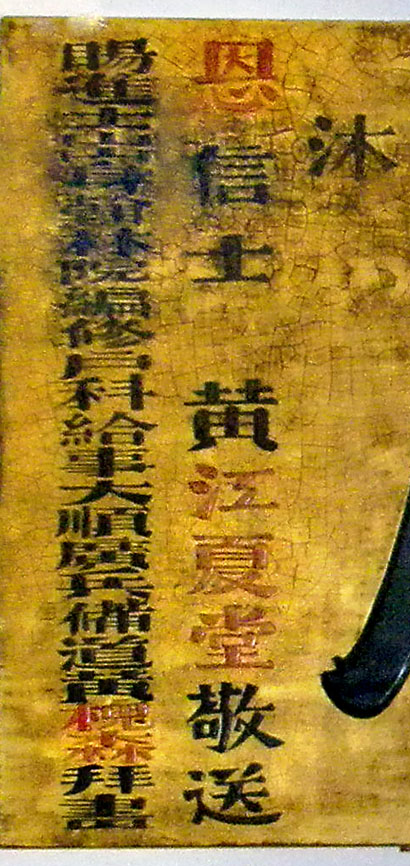 沐
恩信士 黄江夏堂敬送
賜進士出身翰林院編修戶科給事大順廣兵備道黄槐森拜書